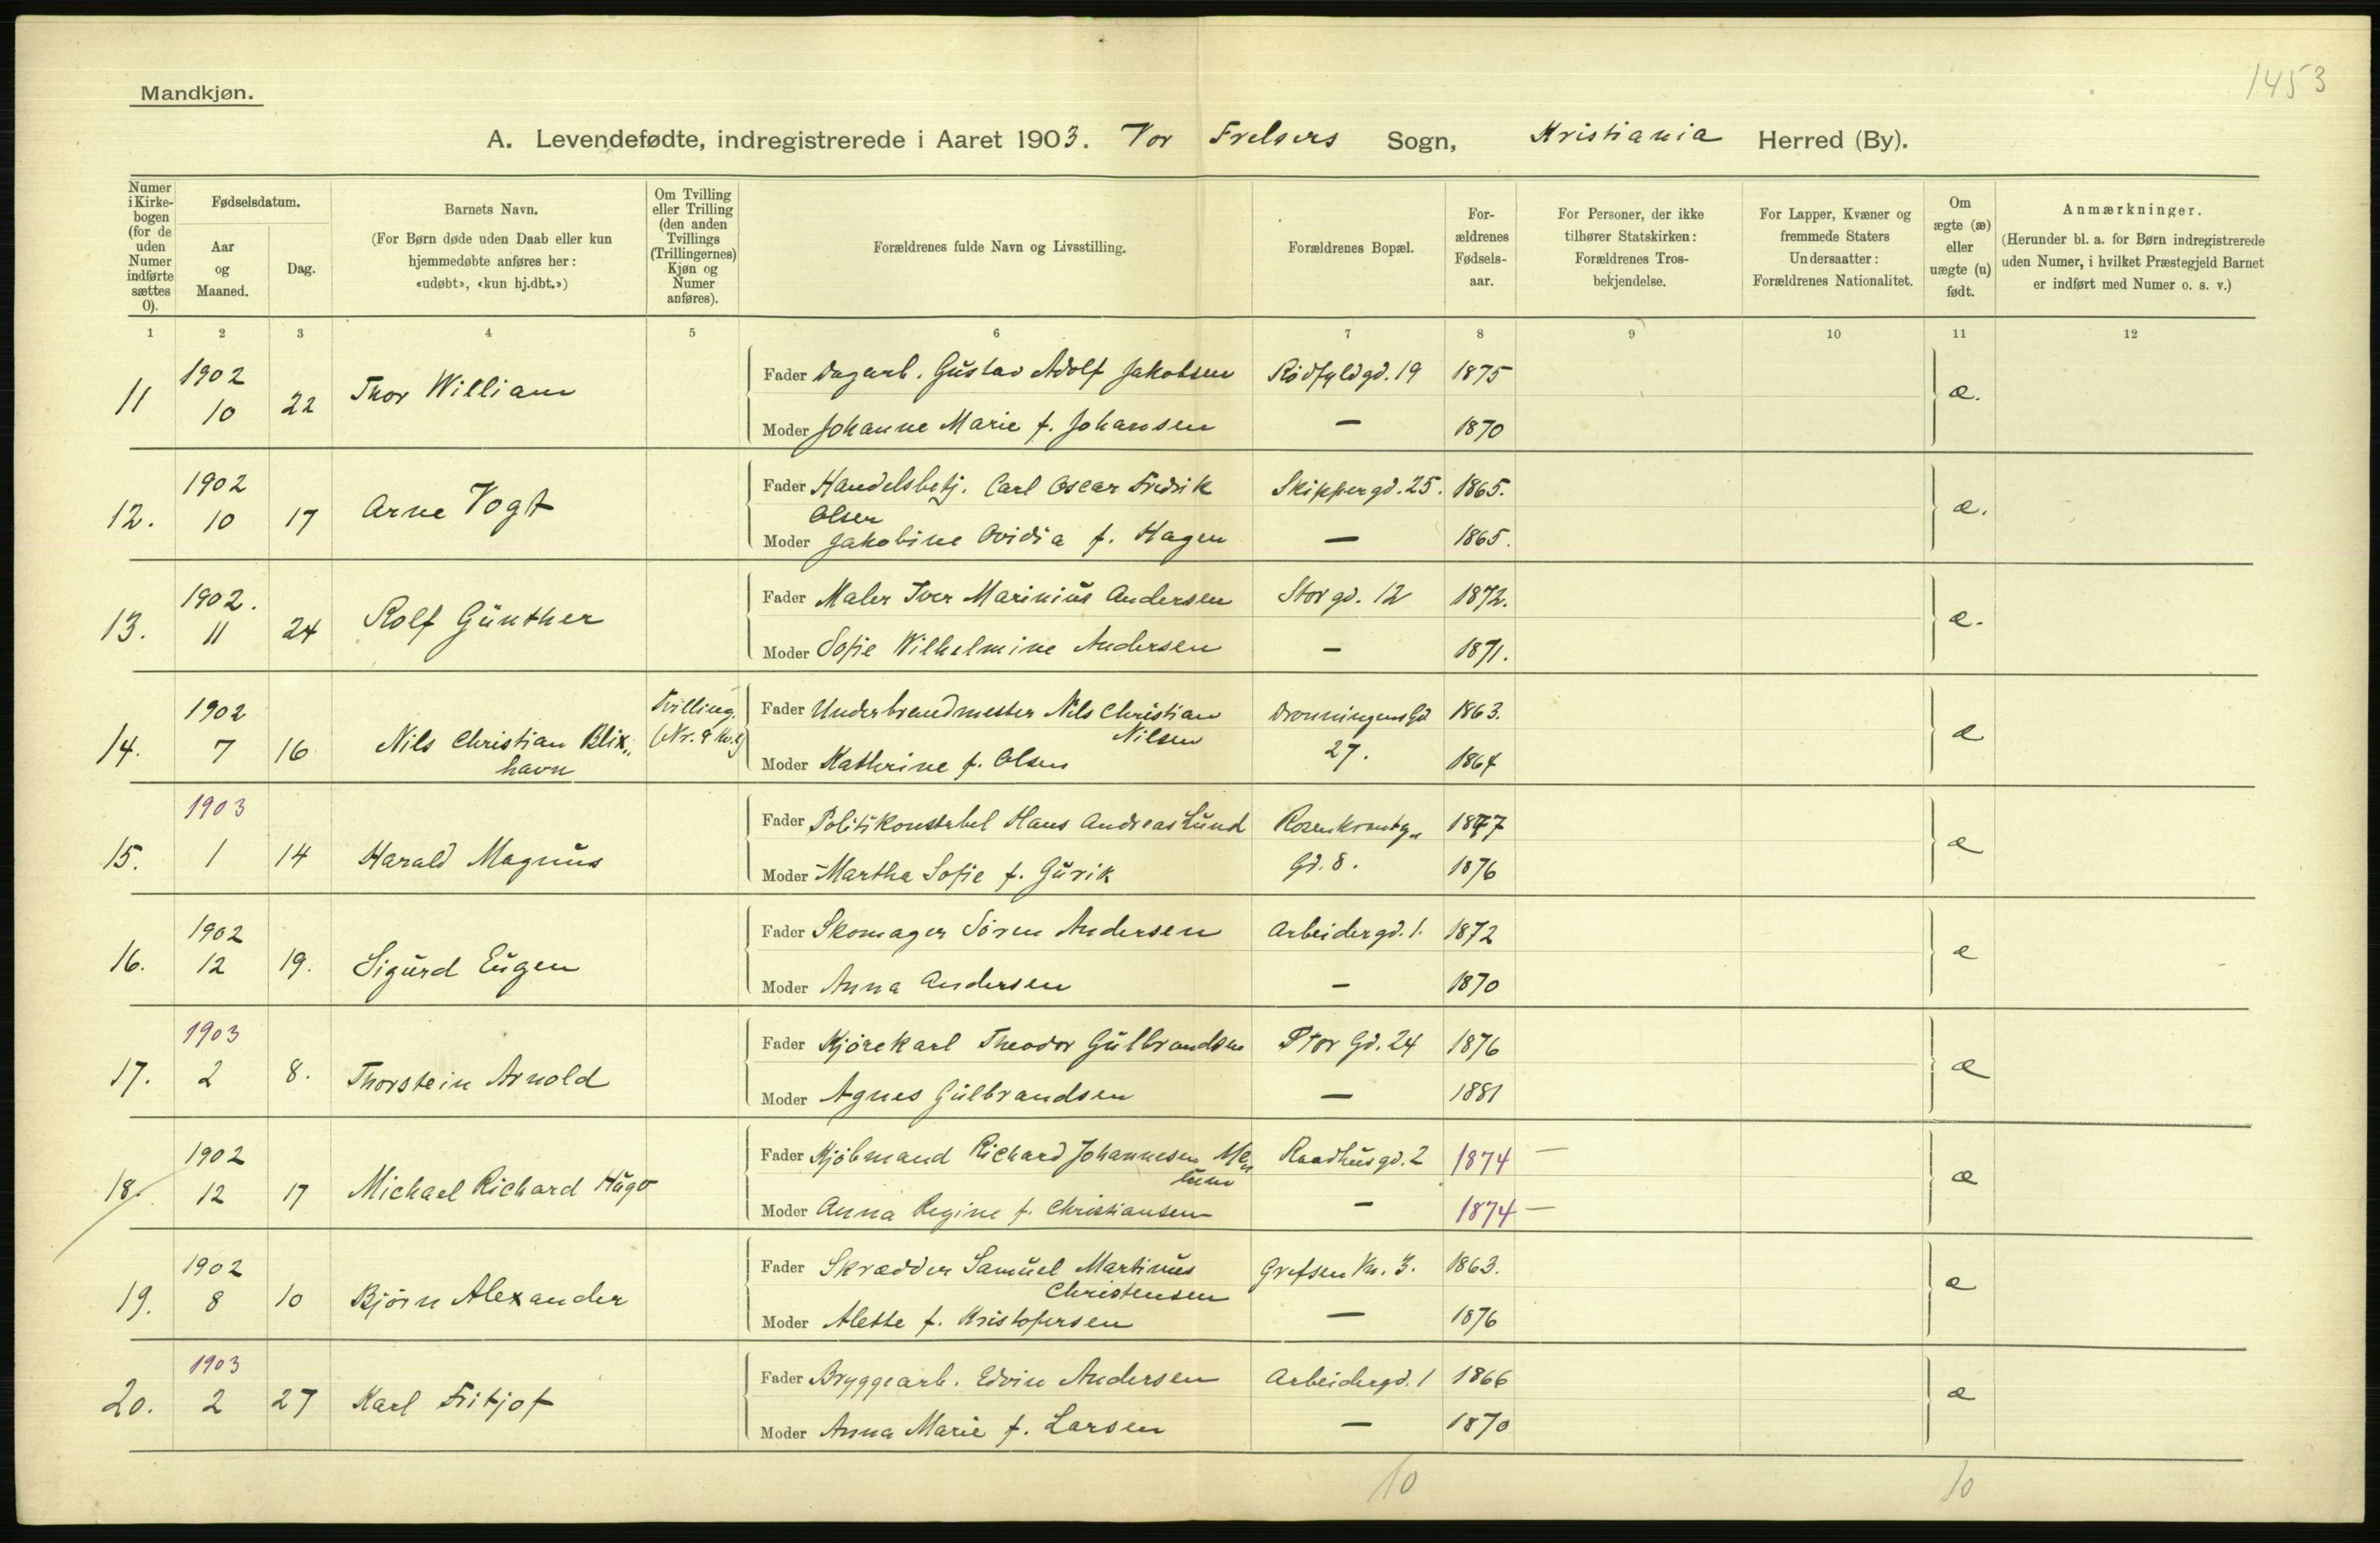 1453
Mandkjøn.
A. Levendefødte, indregistrerede i Aaret 1903. Vor Frelsers Sogn, Kristiania Herred (By).
Numer i Kirkebogen (for de uden Numer indførte sættes 0).
Fødselsdatum.
Aar og Maaned.
Dag.
Barnets Navn.
(For Børn døde uden Daab eller kun hjemmedøbte anføres her: «udøbt», «kun hj.dbt.»)
Om Tvilling eller Trilling (den anden Tvillings (Trillingernes) Kjøn og Numer anføres).
Forældrenes fulde Navn og Livsstilling.
Forældrenes Bopæl.
Forældrenes Fødselsaar.
For Personer, der ikke tilhører Statskirken: Forældrenes Trosbekjendelse.
For Lapper, Kvæner og fremmede Staters Undersaatter: Forældrenes Nationalitet.
Om ægte (æ) eller uægte (u) født.
Anmærkninger.
(Herunder bl. a. for Børn indregistrerede uden Numer, i hvilket Præstegjeld Barnet er indført med Numer o. s. v.)
1 2 3 4 5 6 7 8 9 10 11 12
11 1902 10 22 Thor William Fader Dagarb. Gustav Adolf Jakobsen Rødfyldgd. 19 1875 æ.
Moder Johanne Marie f. Johansen — 1870
12. 1902 10 17 Arne Vogt Fader Handelsbetj. Carl Oscar Fredrik Skippergd. 25. 1865. æ.
Olsen
Moder Jakobine Ovidia f. Hagen — 1865.
13. 1902. 11 24 Rolf Günther Fader Maler Iver Marinius Andersen Storgd. 12 1872. æ.
Moder Sofie Wilhelmine Andersen — 1871.
14. 1902 7 16 Nils Christian Blix Tvilling. Fader Underbrandmester Nils Christian Dronningens Gd 1863. æ
havn Nilsen 27.
Moder Kathrine f. Olsen 1864
15. 1903 1 14 Harald Magnus Fader Politikonstabel Hans Andreas Lund Rosenkrantz 1877 æ
Moder Martha Sofie f. Gurik Gd. 8. 1876
16. 1902 12 19. Sigurd Eugen Fader Skomager Søren Andersen Arbeidergd. 1. 1872 æ
Moder Anna Andersen — 1870
17. 1903 2 8. Thorstein Arnold Fader Kjørekarl Theodor Gulbrandsen Stor Gd. 24 1876 æ
Moder Agnes Gulbrandsen — 1881
18. 1902 12 17 Michael Richard Hugo Fader Kjøbmand Richard Johannesen Raadhusgd. 2 1874 — æ
Moder Anna Regine f. Christiansen — 1874 —
19. 1902 8 10 Bjørn Alexander Fader Skrædder Samuel Martinus Grefsen Vn. 3. 1863. æ
Christensen
Moder Alette f. Kristofersen — 1876
20. 1903 2 27 Karl Fritjof Fader Bryggearb. Edvin Andersen Arbeidergd. 1 1866 æ
Moder Anna Marie f. Larsen — 1870
10 10